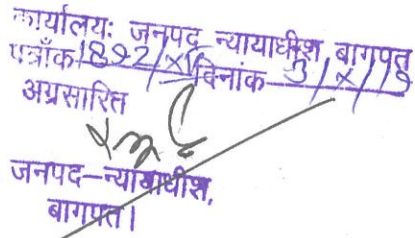 कार्यालयः जनपद न्यायाधीश, बागपत
पत्राँक 1892/XV दिनांक 3/X/15
अग्रसारित
जनपद–न्यायाधीश,
बागपत।